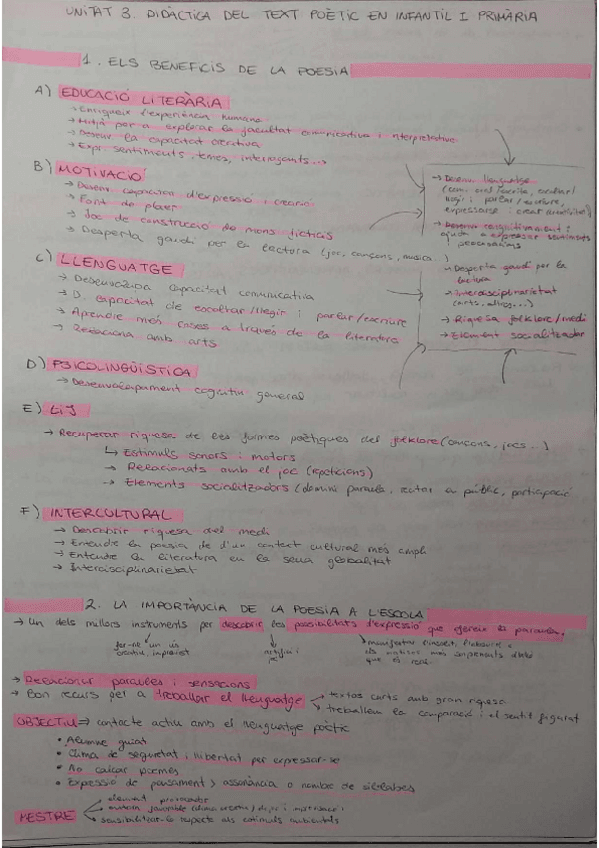 UNITAT 3. DIDÀCTICA DEL TEXT POÈTIC EN INFANTIL I PRIMÀRIA
1. ELS BENEFICIS DE LA POESIA
A) EDUCACIÓ LITERÀRIA
→ Enriqueix l'experiència humana
→ Mitjà per a explorar la facultat comunicativa i interpretativa
→ Desenv. la capacitat creativa
→ Expr. sentiments, temes, interrogants...
B) MOTIVACIÓ
→ Desenv. capacitat d'expressió i creació
→ Font de plaer
→ Joc de construcció de mons ficticis
→ Desperta gaudi per la lectura (joc, cançons, música...)
C) LLENGUATGE
→ Desenvolupa capacitat comunicativa
→ D. capacitat de escoltar/llegir i parlar/escriure
→ Aprendre més coses a través de la literatura
→ Relaciona amb arts
→ Desenv. llenguatge
(com. oral/escrita, escoltar/
llegir i parlar/escriure,
expressarse i crear
→ Desenv. cognitivament i
ajuda a expressar sentiments
i pensaments
→ Desperta gaudi per la
lectura
→ Interdisciplinarietat
(arts, altres...)
→ Riquesa folklore/medi
→ Element socialitzador
D) PSICOLINGÜÍSTICA
→ Desenvolupament cognitiu general
E) LIJ
→ Recuperar riquesa de les formes poètiques del folklore (cançons, jocs...)
↳ Estímuls sonors i motors
→ Relacionats amb el joc (repeticions)
→ Elements socialitzadors (domini paraula, recitar a públic, participació
F) INTERCULTURAL
→ Descobrir riquesa del medi
→ Entendre la poesia de d'un context cultural més ampli
→ Entendre la literatura en la seua globalitat
→ Interdisciplinarietat
2. LA IMPORTÀNCIA DE LA POESIA A L'ESCOLA
→ Un dels millors instruments per descobrir les possibilitats d'expressió que ofereix la paraula.
fer-ne un ús
creatiu, imprevist
que el rodea
→ Relacionar paraules i sensacions
→ Bon recurs per a treballar el llenguatge → textos curts amb gran riquesa
→ treballem la comparació i el sentit figurat
OBJECTIU ⇒ contacte actiu amb el llenguatge poètic
• Alumne guiat
• Clima de seguretat i llibertat per expressar-se
• No calcar poemes
• Expressió de pensament > assonància o nombre de síl·labes
MESTRE
← element provocador
← sensibilitzar-lo respecte als estímuls ambientals